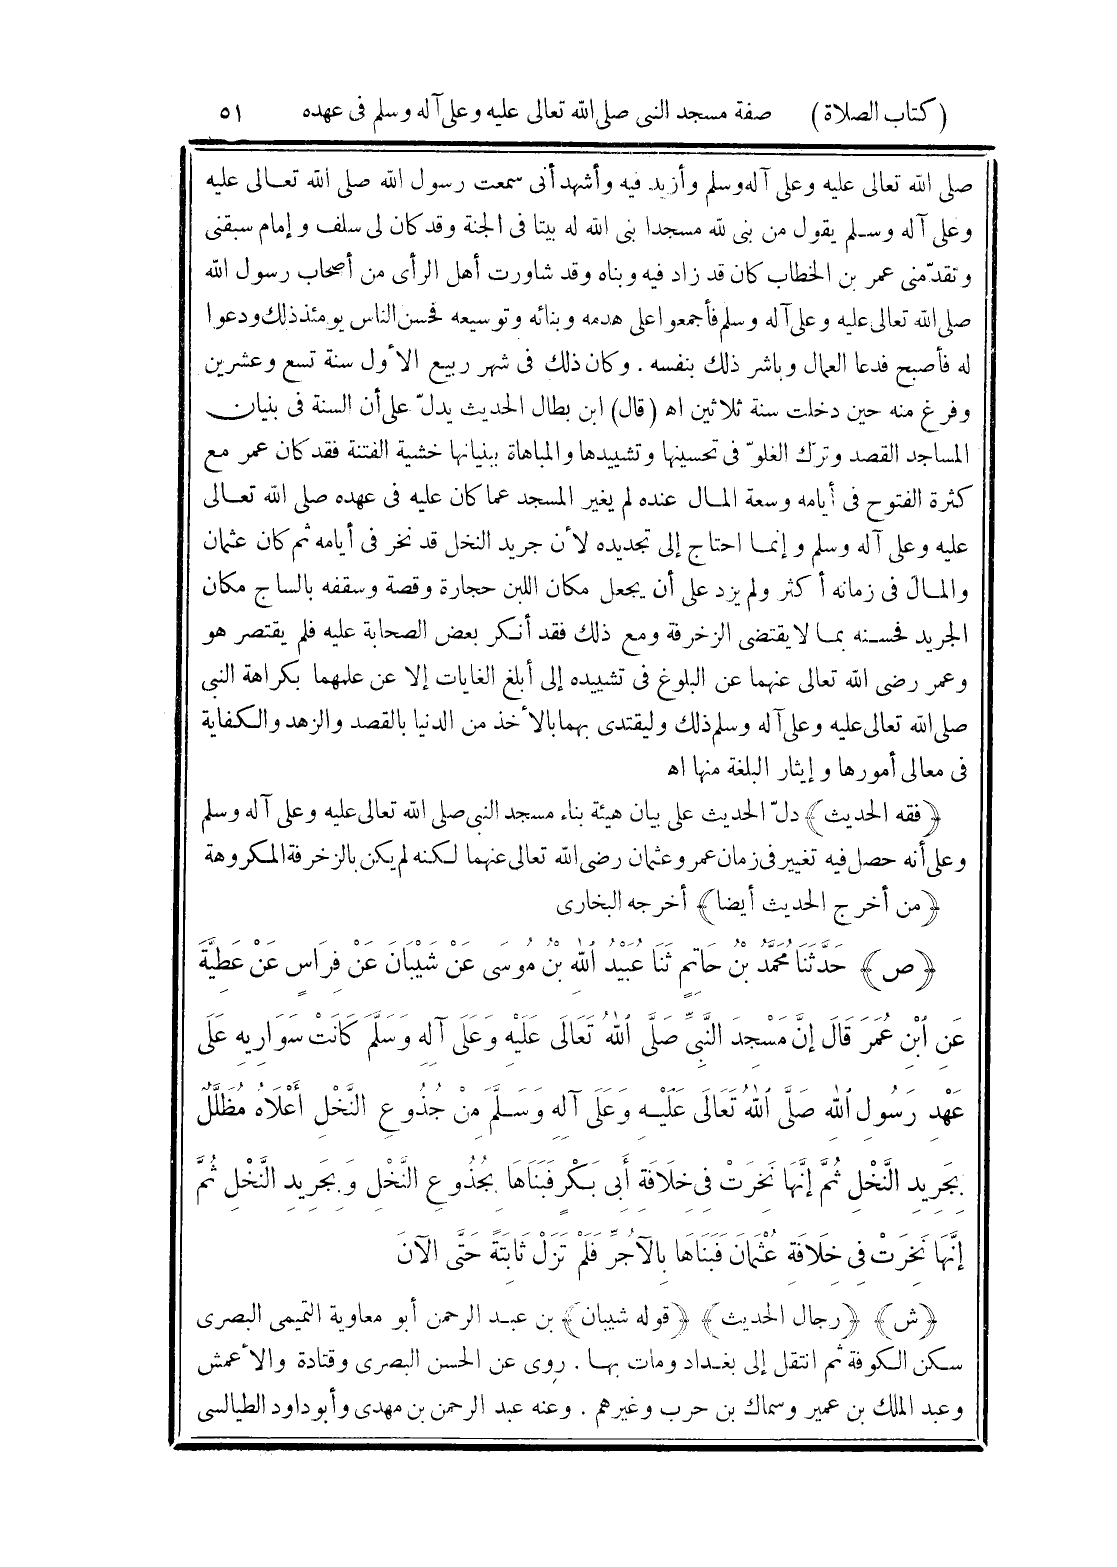 (كتاب الصلاة) صفة مسجد النبى صلى الله تعالى عليه وعلى آله وسلم فى عهده ٥١
صلى الله تعالى عليه وعلى آله وسلم وأزيد فيه وأشهد أنى سمعت رسول الله صلى الله تعالى عليه
وعلى آله وسلم يقول من بنى لله مسجدا بنى الله له بيتا فى الجنة وقد كان لى سلف وإمام سبقنى
وتقدّمنى عمر بن الخطاب كان قد زاد فيه وبناه وقد شاورت أهل الرأى من أصحاب رسول الله
صلى الله تعالى عليه وعلى آله وسلم فأجمعوا على هدمه وبنائه وتوسيعه فحسن الناس يومئذ ذلك ودعوا
له فأصبح فدعا العمال وباشر ذلك بنفسه . وكان ذلك فى شهر ربيع الأول سنة تسع وعشرين
وفرغ منه حين دخلت سنة ثلاثين اه (قال) ابن بطال الحديث يدلّ على أن السنة فى بنيان
المساجد القصد وترك الغلوّ فى تحسينها وتشييدها والمباهاة ببنيانها خشية الفتنة فقد كان عمر مع
كثرة الفتوح فى أيامه وسعة المال عنده لم يغير المسجد عما كان عليه فى عهده صلى الله تعالى
عليه وعلى آله وسلم وإنما احتاج إلى تجديده لأن جريد النخل قد نخر فى أيامه ثم كان عثمان
والمال فى زمانه أكثر ولم يزد على أن يجعل مكان اللبن حجارة وقصة وسقفه بالساج مكان
الجريد فحسنه بما لا يقتضى الزخرفة ومع ذلك فقد أنكر بعض الصحابة عليه فلم يقتصر هو
وعمر رضى الله تعالى عنهما عن البلوغ فى تشييده إلى أبلغ الغايات إلا عن علمهما بكراهة النبى
صلى الله تعالى عليه وعلى آله وسلم ذلك وليقتدى بهما بالأخذ من الدنيا بالقصد والزهد والكفاية
فى معالى أمورها وإيثار البلغة منها اه
﴿فقه الحديث﴾ دلّ الحديث على بيان هيئة بناء مسجد النبى صلى الله تعالى عليه وعلى آله وسلم
وعلى أنه حصل فيه تغيير فى زمان عمر وعثمان رضى الله تعالى عنهما لكنه لم يكن بالزخرفة المكروهة
﴿من أخرج الحديث أيضا﴾ أخرجه البخارى
﴿ص﴾ حَدَّثَنَا مُحَمَّدُ بْنُ حَاتِمٍ ثَنَا عُبَيْدُ اللهِ بْنُ مُوسَى عَنْ شَيْبَانَ عَنْ فِرَاسٍ عَنْ عَطِيَّةَ
عَنِ ابْنِ عُمَرَ قَالَ إِنَّ مَسْجِدَ النَّبِيِّ صَلَّى اللهُ تَعَالَى عَلَيْهِ وَعَلَى آلِهِ وَسَلَّمَ كَانَتْ سَوَارِيهِ عَلَى
عَهْدِ رَسُولِ اللهِ صَلَّى اللهُ تَعَالَى عَلَيْهِ وَعَلَى آلِهِ وَسَلَّمَ مِنْ جُذُوعِ النَّخْلِ أَعْلَاهُ مُظَلَّلٌ
بِجَرِيدِ النَّخْلِ ثُمَّ إِنَّهَا نَخِرَتْ فِى خِلَافَةِ أَبِى بَكْرٍ فَبَنَاهَا بِجُذُوعِ النَّخْلِ وَبِجَرِيدِ النَّخْلِ ثُمَّ
إِنَّهَا نَخِرَتْ فِى خِلَافَةِ عُثْمَانَ فَبَنَاهَا بِالْآجُرِّ فَلَمْ تَزَلْ ثَابِتَةً حَتَّى الْآنَ
﴿ش﴾ ﴿رجال الحديث﴾ ﴿قوله شيبان﴾ بن عبد الرحمن أبو معاوية التميمى البصرى
سكن الكوفة ثم انتقل إلى بغداد ومات بها . روى عن الحسن البصرى وقتادة والأعمش
وعبد الملك بن عمير وسماك بن حرب وغيرهم . وعنه عبد الرحمن بن مهدى وأبو داود الطيالسى